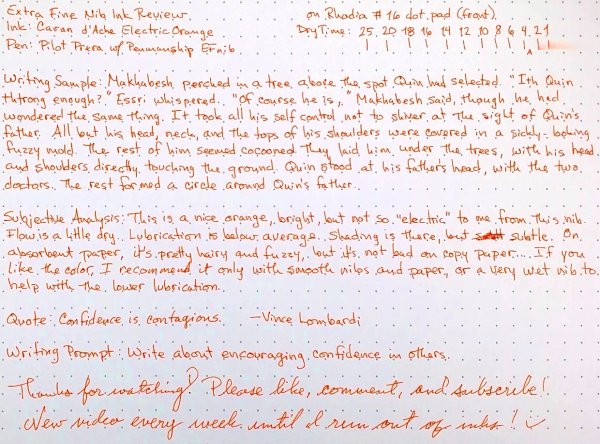 Extra Fine Nib Ink Review on Rhodia #16 dot pad (front)
Ink: Caran d'Ache Electric Orange Dry Time: 25 20 18 16 14 12 10 8 6 4 2 1
Pen: Pilot Prera w/ Penmanship EF nib
Writing Sample: Makhabesh perched in a tree above the spot Quin had selected. "Ith Quin
thtrong enough?" Essri whispered. "Of course he is," Makhabesh said, though he had
wondered the same thing. It took all his self control not to shiver at the sight of Quin's
father. All but his head, neck, and the tops of his shoulders were covered in a sickly-looking
fuzzy mold. The rest of him seemed cocooned. They laid him under the trees, with his head
and shoulders directly touching the ground. Quin stood at his father's head, with the two
doctors. The rest formed a circle around Quin's father.
Subjective Analysis: This is a nice orange, bright, but not so "electric" to me from this nib.
Flow is a little dry. Lubrication is below average. Shading is there, but subtle. On
absorbent paper, it's pretty hairy and fuzzy, but it's not bad on copy paper.... If you
like the color, I recommend it only with smooth nibs and paper, or a very wet nib to
help with the lower lubrication.
Quote: Confidence is contagious. —Vince Lombardi
Writing Prompt: Write about encouraging confidence in others.
Thanks for watching! Please like, comment, and subscribe!
New video every week until I run out of inks!